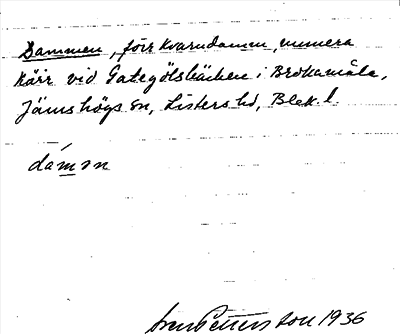 Dammen, förr kvarndamen, numera
kärr vid Gategölsbäcken i Brokamåla,
Jämshögs sn, Listers hd, Blek. l.
dámən
Sven Petterson 1936